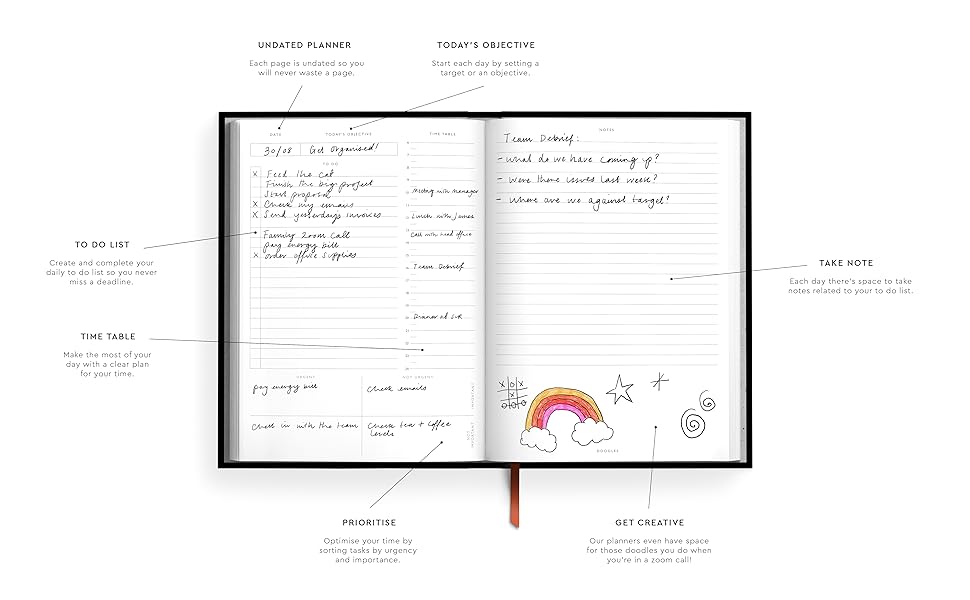 UNDATED PLANNER
Each page is undated so you
will never waste a page.
TODAY'S OBJECTIVE
Start each day by setting a
target or an objective.
DATE
TODAY'S OBJECTIVE
TIME TABLE
30/08
Get Organised!
TO DO
x Feed the cat
Finish the big project
Start proposal
x Check my emails
x Send yesterdays invoices
Family Zoom call
pay energy bill
x order office supplies
Meeting with manager
Lunch with James
Call with head office
Team Debrief
Dinner at
URGENT
NOT URGENT
pay energy bill
Check emails
IMPORTANT
Check in with the team
Check tea + coffee
levels
NOT
IMPORTANT
NOTES
Team Debrief:
- what do we have coming up?
- Were there issues last week?
- where are we against target?
DOODLES
TO DO LIST
Create and complete your
daily to do list so you never
miss a deadline.
TIME TABLE
Make the most of your
day with a clear plan
for your time.
TAKE NOTE
Each day there's space to take
notes related to your to do list.
PRIORITISE
Optimise your time by
sorting tasks by urgency
and importance.
GET CREATIVE
Our planners even have space
for those doodles you do when
you're in a zoom call!